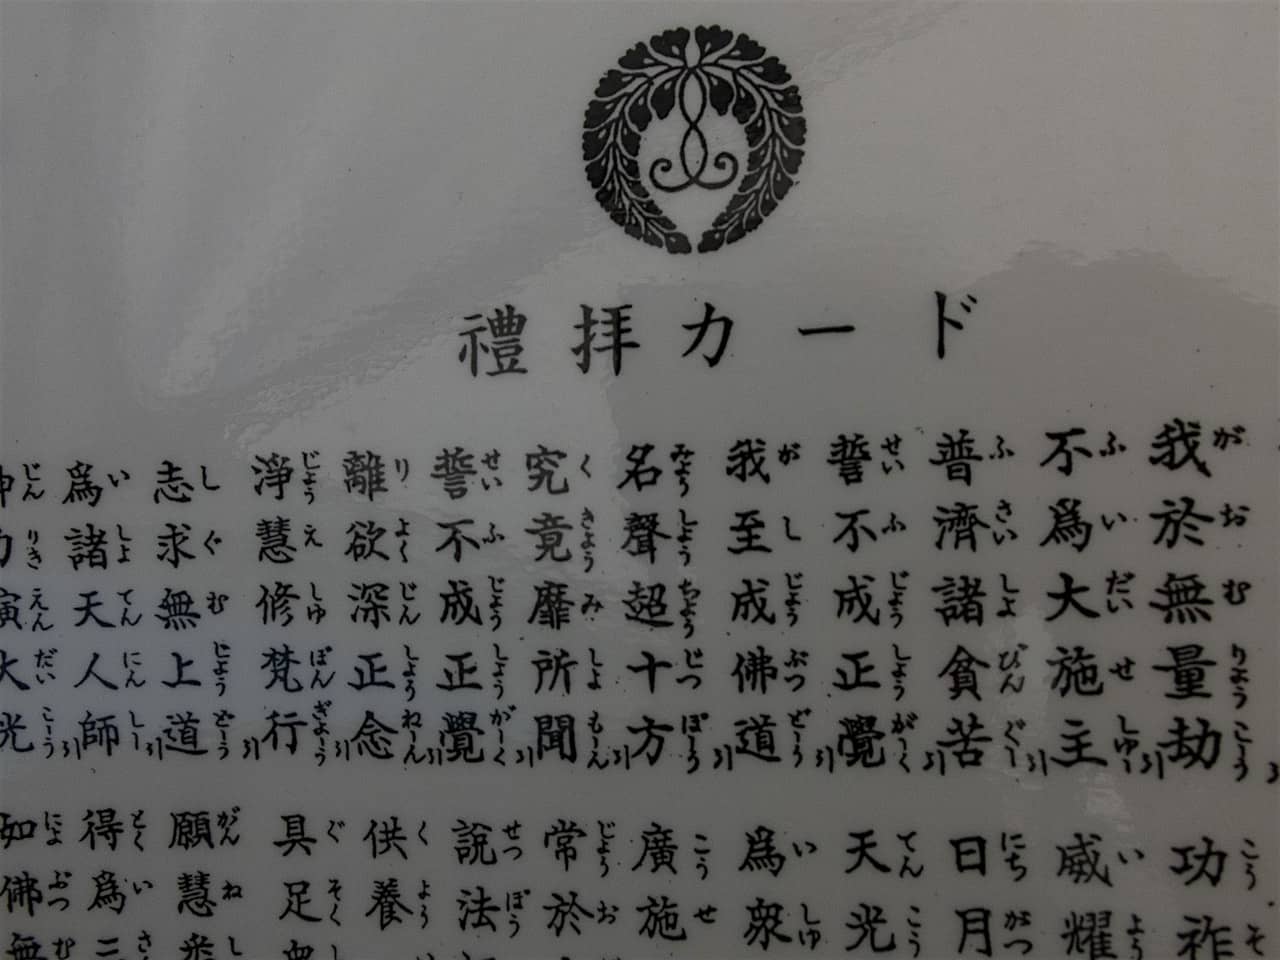 禮拝カード
我於無量劫
不爲大施主
普濟諸貧苦
誓不成正覺
我至成佛道
名聲超十方
究竟靡所聞
誓不成正覺
離欲深正念
淨慧修梵行
志求無上道
爲諸天人師
神力演大光
功祚
威耀
日月
天光
爲衆
廣施
常於
說法
供養
具足衆
願慧悉
得爲三
如佛無